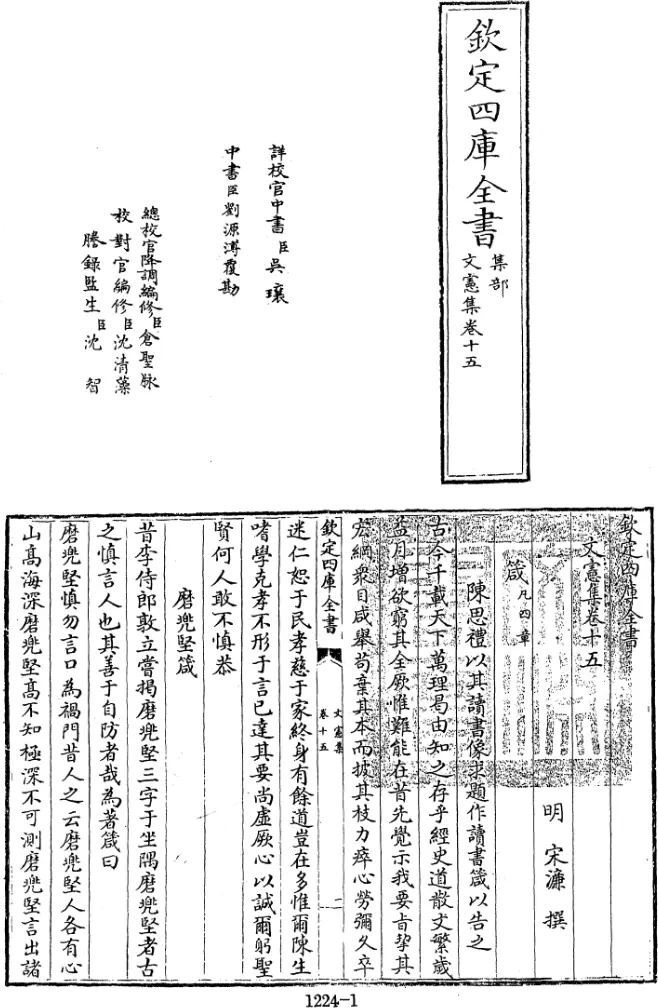 欽定四庫全書
集部
文憲集卷十五
詳校官中書臣吳璥
中書臣劉源溥覆勘
總校官降調編修臣倉聖脉
校對官編修臣沈清藻
謄錄監生臣沈智
欽定四庫全書
文憲集卷十五
明 宋濂 撰
箴凡四章
陳思禮以其讀書像求題作讀書箴以告之
古今千載天下萬理曷由知之存乎經史道散文繁歲
益月增欲窮其全厥惟難能在昔先覺示我要旨挈其
宏綱衆目咸舉茍棄其本而披其枝力瘁心勞彌久卒
欽定四庫全書
文憲集
卷十五
二
迷仁恕于民孝慈于家終身有餘道豈在多惟爾陳生
嗜學克孝不形于言已達其要尚虛厥心以誠爾躬聖
賢何人敢不慎恭
磨兠堅箴
昔李侍郎敦立當揭磨兠堅三字于坐隅磨兠堅者古
之慎言人也其善于自防者哉為著箴曰
磨兠堅慎勿言口為禍門昔人之云磨兠堅人各有心
山高海深磨兠堅高不知極深不可測磨兠堅言出諸
1224-1